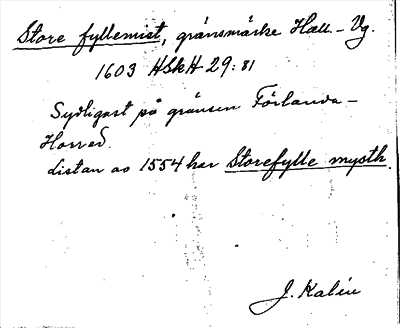 Store fyllemist, gränsmärke Hall. - Vg.
1603 HSkH 29:81
Sydligast på gränsen Förlanda -
Horred.
Listan av 1554 har Storefylle mysth.
J. Kalén